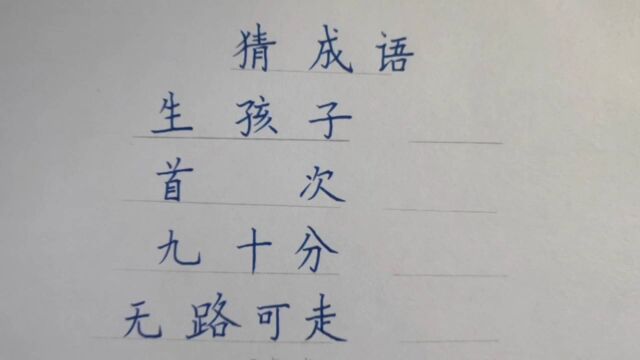 猜成语
生孩子
首次
九十分
无路可走